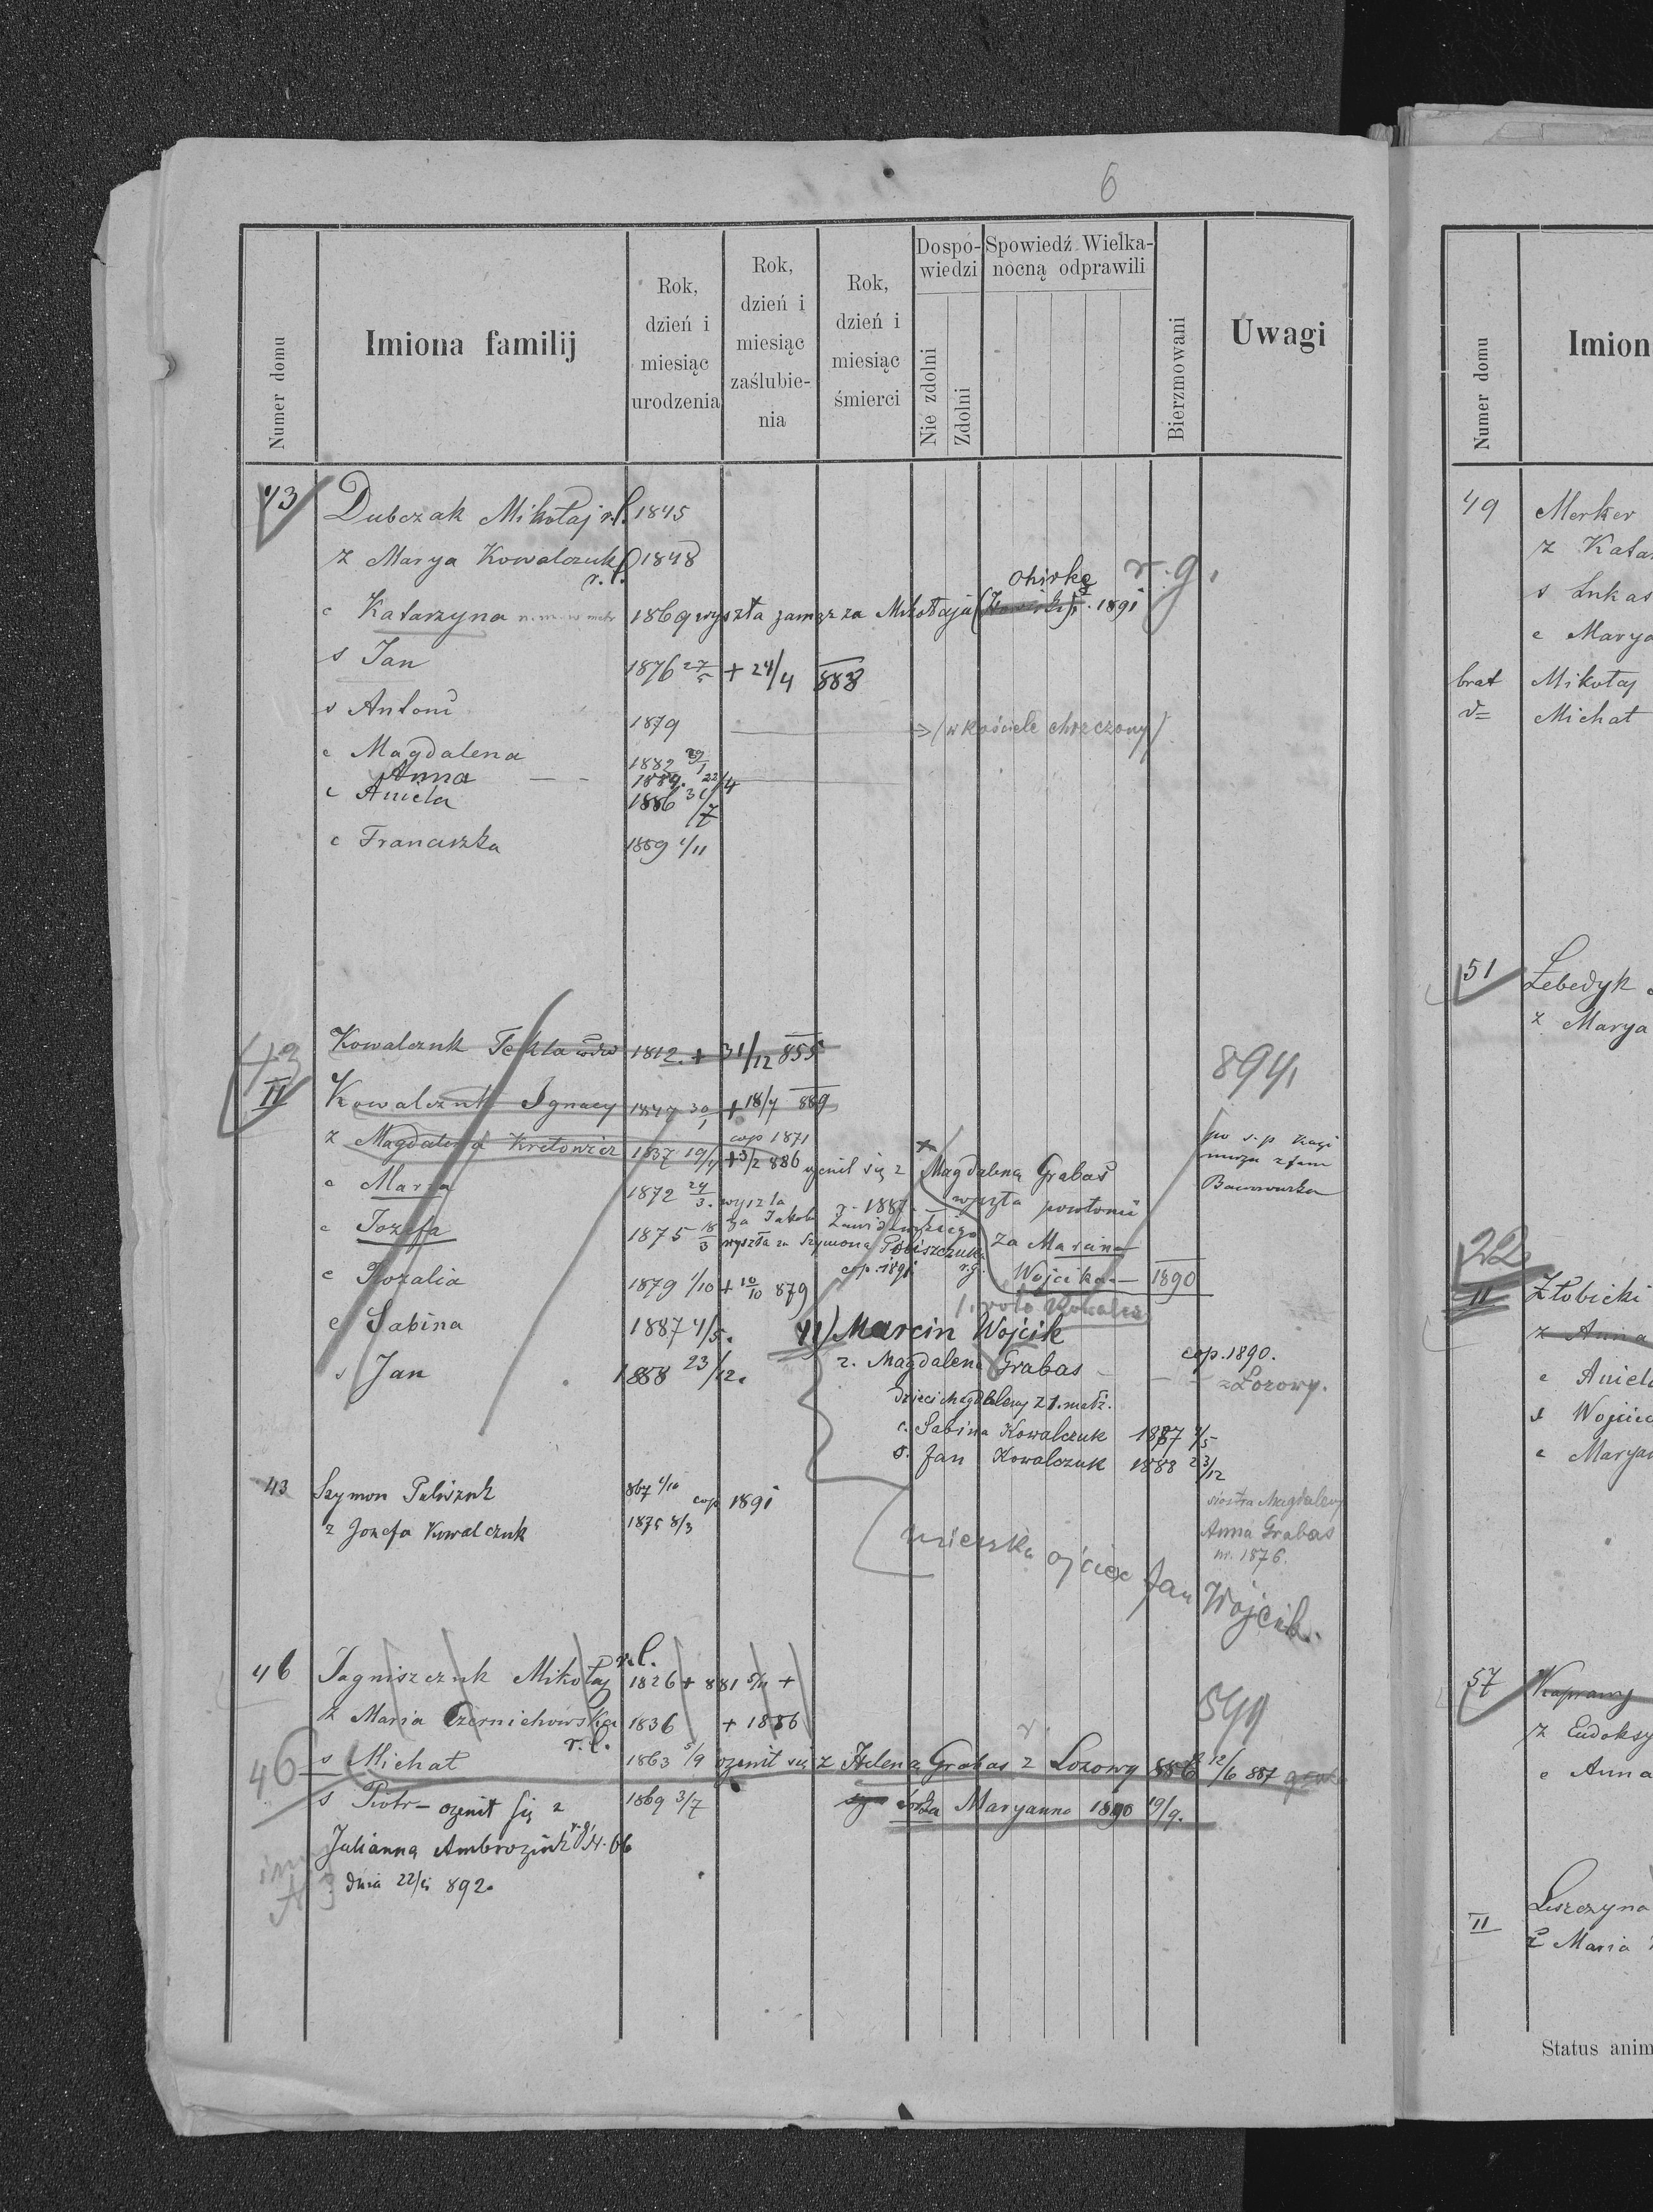 6
Numer domu
Imiona familij
Rok, dzień i miesiąc urodzenia
Rok, dzień i miesiąc zaślubienia
Rok, dzień i miesiąc śmierci
Dospowiedzi
Nie zdolni
Zdolni
Spowiedź Wielkanocną odprawili
Bierzmowani
Uwagi
43 Dubczak Mikołaj r.l. 1845
ż Marya Kowalczuk r.l. 1848
c Katarzyna 1869 wyszła zamąż za Mikołaja Ohirkę 1891 r.g.
s Jan 1876 27/5 + 24/4 888
s Antoni 1879 (w kościele chrzczony)
c Magdalena 1882 29/1
Anna 1884. 22/4
c Aniela 1886 31/7
c Franciszka 1889 1/11
43 II
Kowalczuk Tekla wdw 1812. + 31/12 855
894
Kowalczuk Ignacy 1847 30/1 + 18/7 889
cop 1871
ż Magdalena Kretowicz 1837 19/4 + 3/2 886 ożenił się z Magdaleną Grabas
c Maria 1872 24/3. wyszła za Jakóba r. 1887. wyszła powtórnie
c Jozefa 1875 18/3 wyszła za Szymona Poliszczuka za Marcina
cop. 1891. r.g.
Wojcika — 1890
c Rozalia 1879 1/10 + 10/10 879
c Sabina 1887 4/5.
s Jan 1888 23/12.
II) Marcin Wojcik
ż. Magdalena Grabas cop. 1890.
z Lozowy.
dzieci Magdaleny z 1. małż.
c. Sabina Kowalczuk 1887 4/5
s. Jan Kowalczuk 1888 23/12
43 Szymon Poliszczuk 867 1/10 cop 1891
ż Jozefa Kowalczuk 1875 8/3
siostra Magdaleny
Anna Grabas
ur. 1876.
mieszka ojciec Jan Wójcik.
46 Jagniszczuk Mikołaj r.l. 1826 + 881 5/11 +
ż Maria Czernichowska r.l. 1836 + 1886
549
46 s Michał 1863 5/9 ożenił się z Heleną Grabas z Lozowy 886 12/6 887
s Piotr – ożenił się z 1869 3/7
córka Maryanna 1890 19/9.
Julianną Ambroziuk r.g. N. 66
dnia 22/5 892.
Numer domu
Imion
49 Merker
ż Kata
s Lukas
c Marya
brat Mikołaj
Michał
51 Łebedyk
ż Marya
22
II Złobicki
ż Anna
c Aniela
s Wojciec
c Marya
57 Kaprawy
ż Eudoksy
c Anna
II Leszczyna
ż Maria
Status anim